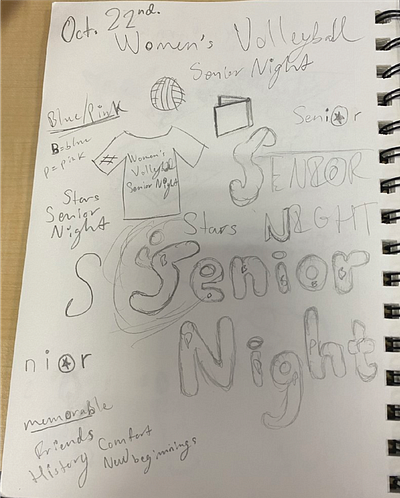 Oct. 22nd.
Women's Volleyball
Senior Night
Blue/Pink
B=blue
P=pink
Women's
Volleyball
Senior Night
Senior
SENIOR
NIGHT
Stars
Senior
Night
Stars
S
Senior
Night
nior
memorable
Friends
Comfort
History
New beginnings